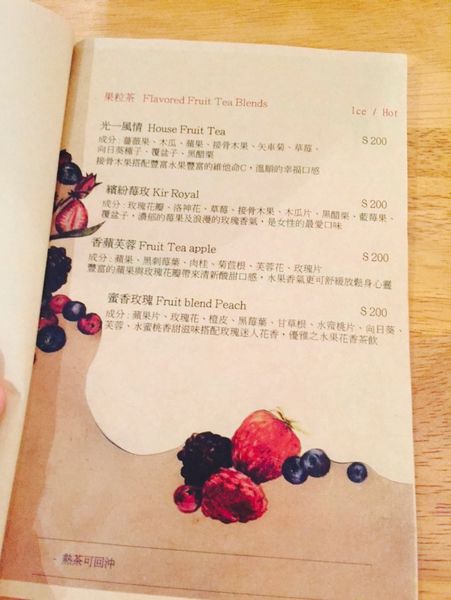 果粒茶 Flavored Fruit Tea Blends
Ice / Hot
光一風情 House Fruit Tea $ 200
成分 : 薔薇果、木瓜、蘋果、接骨木果、矢車菊、草莓、
向日葵種子、覆盆子、黑醋栗
接骨木果搭配豐富水果豐富的維他命C，溫順的幸福口感
繽紛莓玫 Kir Royal $ 200
成分 : 玫瑰花瓣、洛神花、草莓、接骨木果、木瓜片、黑醋栗、藍莓果、
覆盆子，濃郁的莓果及浪漫的玫瑰香氣，是女性的最愛口味
香蘋芙蓉 Fruit Tea apple $ 200
成分 : 蘋果、黑刺莓葉、肉桂、菊苣根、芙蓉花、玫瑰片
豐富的蘋果與玫瑰花瓣帶來清新酸甜口感，水果香氣更可舒緩放鬆身心靈
蜜香玫瑰 Fruit blend Peach $ 200
成分 : 蘋果片、玫瑰花、橙皮、黑莓葉、甘草根、水蜜桃片、向日葵、
芙蓉、水蜜桃香甜滋味搭配玫瑰迷人花香，優雅之水果花香茶飲
- 熱茶可回沖